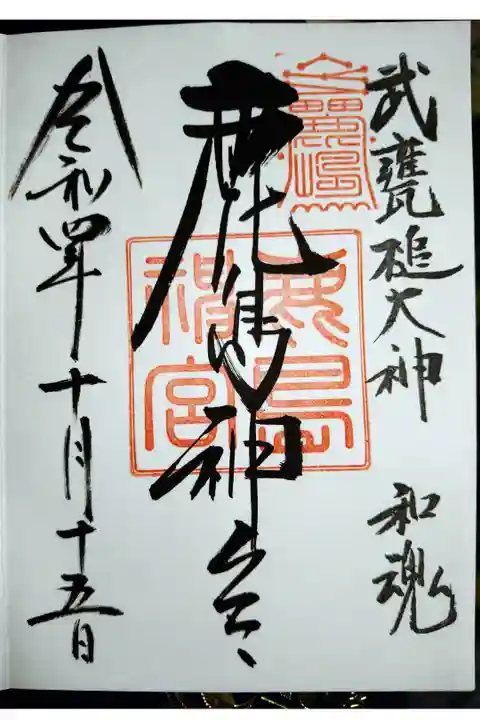 武甕槌大神　和魂
鹿島神宮
鹿島神宮
令和四年十月十五日